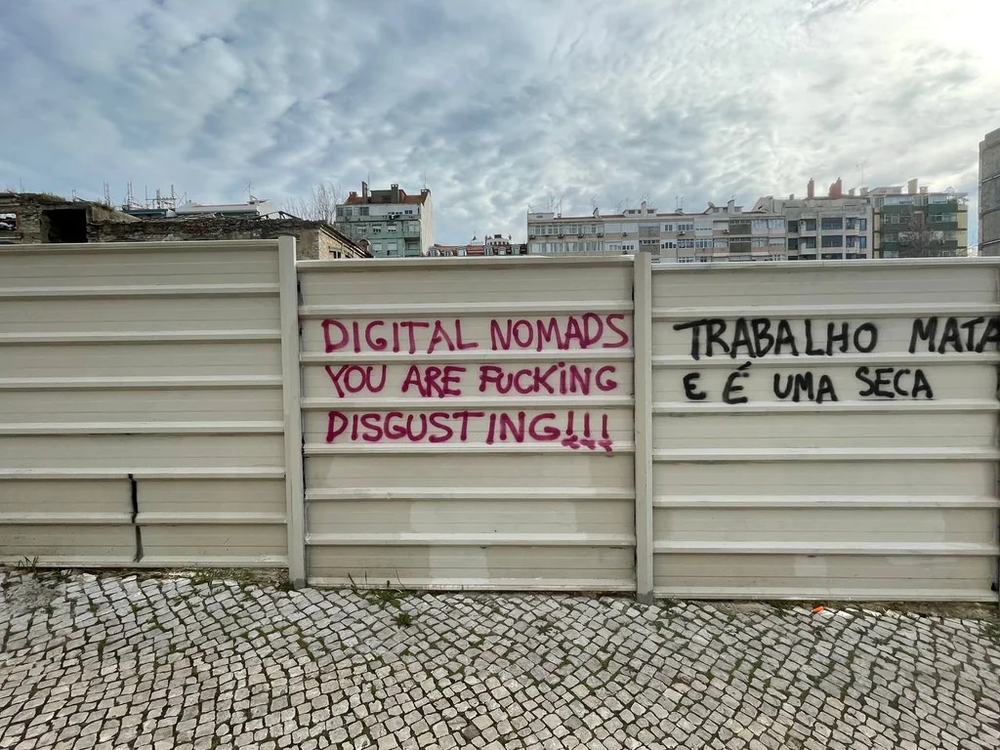 DIGITAL NOMADS
YOU ARE FUCKING
DISGUSTING!!!
TRABALHO MATA
E É UMA SECA